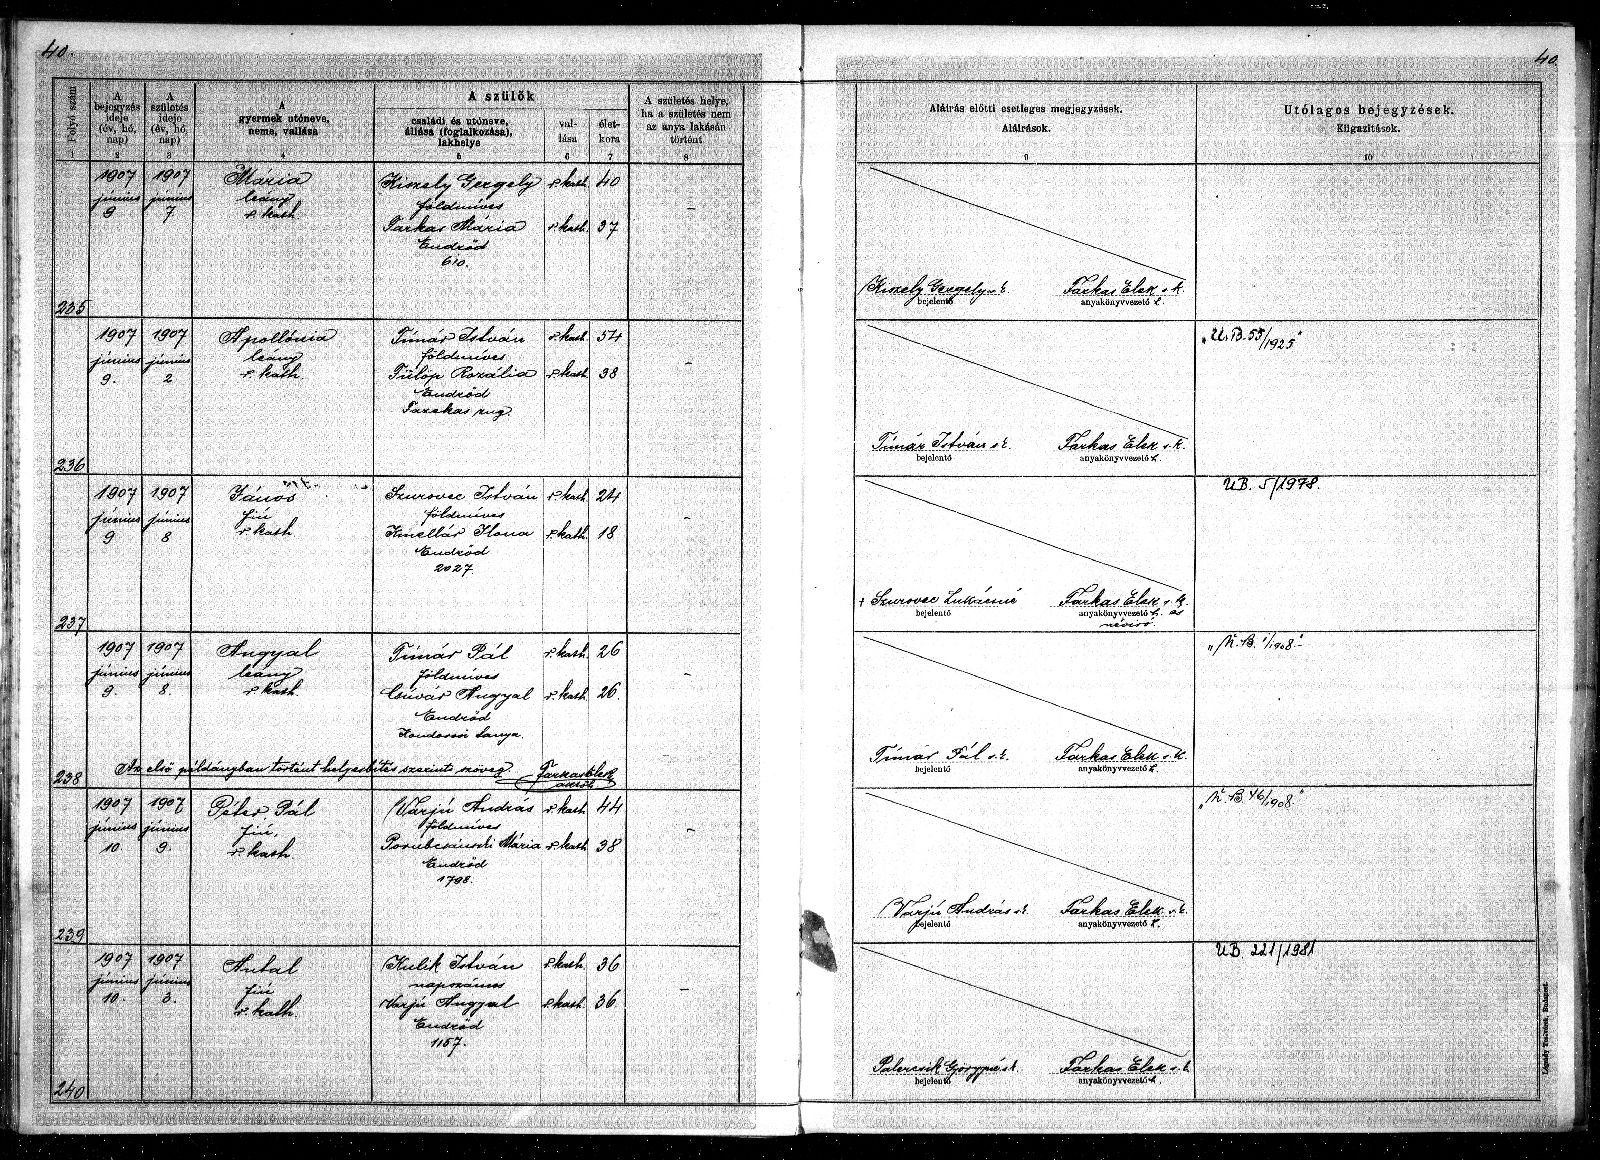 40.
40
Folyó szám
1
A bejegyzés ideje (év, hó, nap)
2
A születés ideje (év, hó, nap)
3
A gyermek utóneve, neme, vallása
4
A szülők
családi és utóneve, állása (foglalkozása), lakhelye
5
vallása
6
életkora
7
A születés helye, ha a születés nem az anya lakásán történt
8
Aláírás előtti esetleges megjegyzések.
Aláírások.
9
Utólagos bejegyzések.
Kiigazítások.
10
235
1907 június 9
1907 június 7
Mária
leány
r. kath.
Kiszely Gergely r. kath. 40
földműves
Farkas Mária r. kath. 37
Endrőd
610.
-
Kiszely Gergely s. k.
bejelentő
Farkas Elek s. k.
anyakönyvvezető h.
236
1907 június 9.
1907 június 2
Apollónia
leány
r. kath.
Tímár István r. kath. 54
földműves
Fülöp Rozália r. kath. 38
Endrőd
Fazekas zug.
-
Tímár István s. k.
bejelentő
Farkas Elek s. k.
anyakönyvvezető h.
"U. B. 55/1925"
237
1907 június 9
1907 június 8
János
fiú
r. kath.
Szurovec István r. kath. 24
földműves
Kmellár Ilona r. kath. 18
Endrőd
2027.
-
+ Szurovec Lukácsné
bejelentő
Farkas Elek s. k.
anyakönyvvezető h. és
névíró.
UB. 5/1978.
238
1907 június 9.
1907 június 8.
Angyal
leány
r. kath.
Tímár Pál r. kath. 26
földműves
Csúvár Angyal r. kath. 26.
Endrőd
Kondorosi tanya.
-
Az első példányban történt helyesbítés szerinti szöveg. Farkas Elek
Tímár Pál s. k.
bejelentő
Farkas Elek s. k.
anyakönyvvezető h.
"U. B. 1/1908."
239
1907 június 10.
1907 június 9.
Péter Pál
fiú,
r. kath.
Varjú András r. kath. 44
földműves
Porubcsinszki Mária r. kath. 38
Endrőd
1798.
-
Varjú András s. k.
bejelentő
Farkas Elek s. k.
anyakönyvvezető h.
"U. B. 46/1908"
240
1907 június 10.
1907 június 3.
Antal
fiú
r. kath.
Kulik István r. kath. 36
napszámos
Varjú Angyal r. kath. 36.
Endrőd
1157.
-
Palercsik Györgyné s. k.
bejelentő
Farkas Elek s. k.
anyakönyvvezető h.
UB. 221/1981
Légrády Testvérek, Budapest.